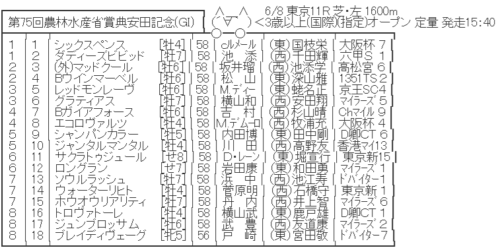 第75回農林水産省賞典安田記念(GI) ∧＿∧ 6/8 東京11R 芝・左 1600m
(´▽｀) ＜3歳以上(国際)(指定)オープン 定量 発走15:40
1 1 シックスペンス [牡4] 58 cルメール (東)国枝栄 大阪杯 7
1 2 ダディーズビビッド [牡7] 58 池添 (西)千田輝 六甲S 1
2 3 (外)マッドクール [牡6] 58 坂井瑠 (西)池添学 高松宮 6
2 4 Bウインマーベル [セ6] 58 松山 (東)深山雅 1351TS2
3 5 レッドモンレーヴ [牡6] 58 M.ディー (東)蛯名正 京王SC4
3 6 グラティアス [牡7] 58 横山和 (西)安田翔 マイラーズ5
4 7 Bガイアフォース [牡6] 58 吉村 (西)杉山晴 Chマイル9
4 8 エコロヴァルツ [牡4] 58 Mデムーロ (西)牧浦充 大阪杯 4
5 9 シャンパンカラー [牡5] 58 内田博 (東)田中剛 D卿CT 6
5 10 ジャンタルマンタル [牡4] 58 川田 (西)高野友 香港マイ13
6 11 サクラトゥジュール [セ8] 58 D・レーン (東)堀宣行 東京新15
6 12 ロングラン [セ7] 58 岩田康 (東)和田勇 マイラーズ1
7 13 ソウルラッシュ [牡7] 58 浜中 (西)池江寿 ドバイター1
7 14 ウォーターリヒト [牡4] 58 菅原明 (西)石橋守 東京新 1
7 15 ホウオウリアリティ [牡7] 58 丹内 (西)井上智 マイラーズ6
8 16 トロヴァトーレ [牡4] 58 横山武 (東)鹿戸雄 D卿CT 1
8 17 ジュンブロッサム [牡6] 58 武豊 (西)友道康 マイラーズ2
8 18 ブレイディヴェーグ [牝5] 56 戸崎 (東)宮田敬 ドバイター7